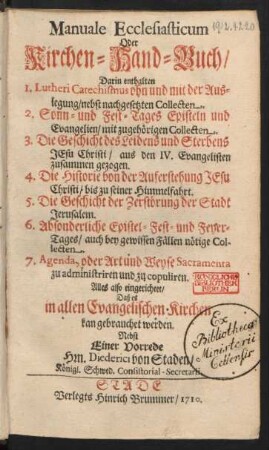 1912.4220
Manuale Ecclesiasticum
Oder
Kirchen-Hand-Buch/
Darin enthalten
1. Lutheri Catechismus ohn und mit der Aus-
legung/nebst nachgesetzten Collecten.
2. Sonn- und Fest-Tages Episteln und
Evangelien/ mit zugehörigen Collecten.
3. Die Geschicht des Leidens und Sterbens
JEsu Christi/ aus den IV. Evangelisten
zusammen gezogen.
4. Die Historie von der Auferstehung JEsu
Christi/ bis zu seiner Himmelfahrt.
5. Die Geschicht der Zerstörung der Stadt
Jerusalem.
6. Absonderliche Epistel- Fest- und Feyer-
Tages/ auch bey gewissen Fällen nötige Col-
lecten.
7. Agenda, oder Art und Weyse Sacramenta
zu administriren und zu copuliren.
Alles also eingerichtet/
Daß es
in allen Evangelischen Kirchen
kan gebrauchet werden.
Nebst
Einer Vorrede
Hm. Diederici von Staden/
Königl. Schwed. Consistorial-Secretarii
STADE
Verlegts Hinrich Brummer/ 1710.
Ex
Bibliotheca
Ministerii
Cellensis